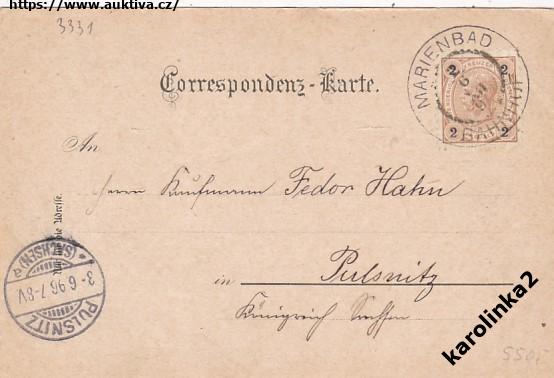 https://www.auktiva.cz/
3331
Correspondenz-Karte.
MARIENBAD
BAHNHOF
2 KREUZER 2
2 2
An
Herrn Kaufmann Fedor Hahn
Nur für die Adresse.
in Pulsnitz
Königreich Sachsen
PULSNITZ
3.6.96.7-8V.
(SACHSEN)
karolinka2
550,-